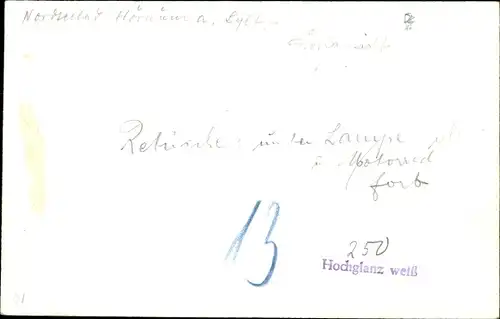 Nordseebad Hörnum a. Sylt
Retusche: unten Lampe
u. Motorrad
fort
13
250
Hochglanz weiß